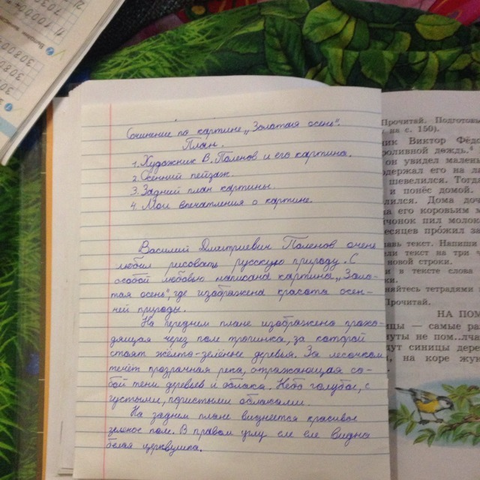 Сочинение по картине „Золотая осень".
План.
1. Художник В. Поленов и его картина.
2. Осенний пейзаж.
3. Задний план картины.
4. Мои впечатления о картине.
Василий Дмитриевич Поленов очень
любил рисовать русскую природу. С
особой любовью написана картина „Золо-
тая осень", где изображена красота осен-
ней природы.
На переднем плане изображена прохо-
дящая через поле тропинка, за которой
стоят жёлто-зелёные деревья. За лесочком
течёт прозрачная река, отражающая со-
бой тени деревьев и облака. Небо голубое, с
густыми, пористыми облаками.
На заднем плане виднеется красивое
зелёное поле. В правом углу еле еле видна
белая церквушка.
Прочитай. Подготовь
с. 150).
ник Виктор Фёдо
роливной дождь.
он увидел малень
одержал его на л
шевелился. Тогда
и понёс домой.
илился. Дома доч
его коровьим м
чонок пил молок
месяцев прожил за
вань текст. Напиши
ли текст на три ч
новой строки.
и в тексте слова
няйтесь тетрадями
Прочитай.
НА ПОМ
ицы — самые ра
нуты не пом..лчат
дут синицы дере
на коре жук